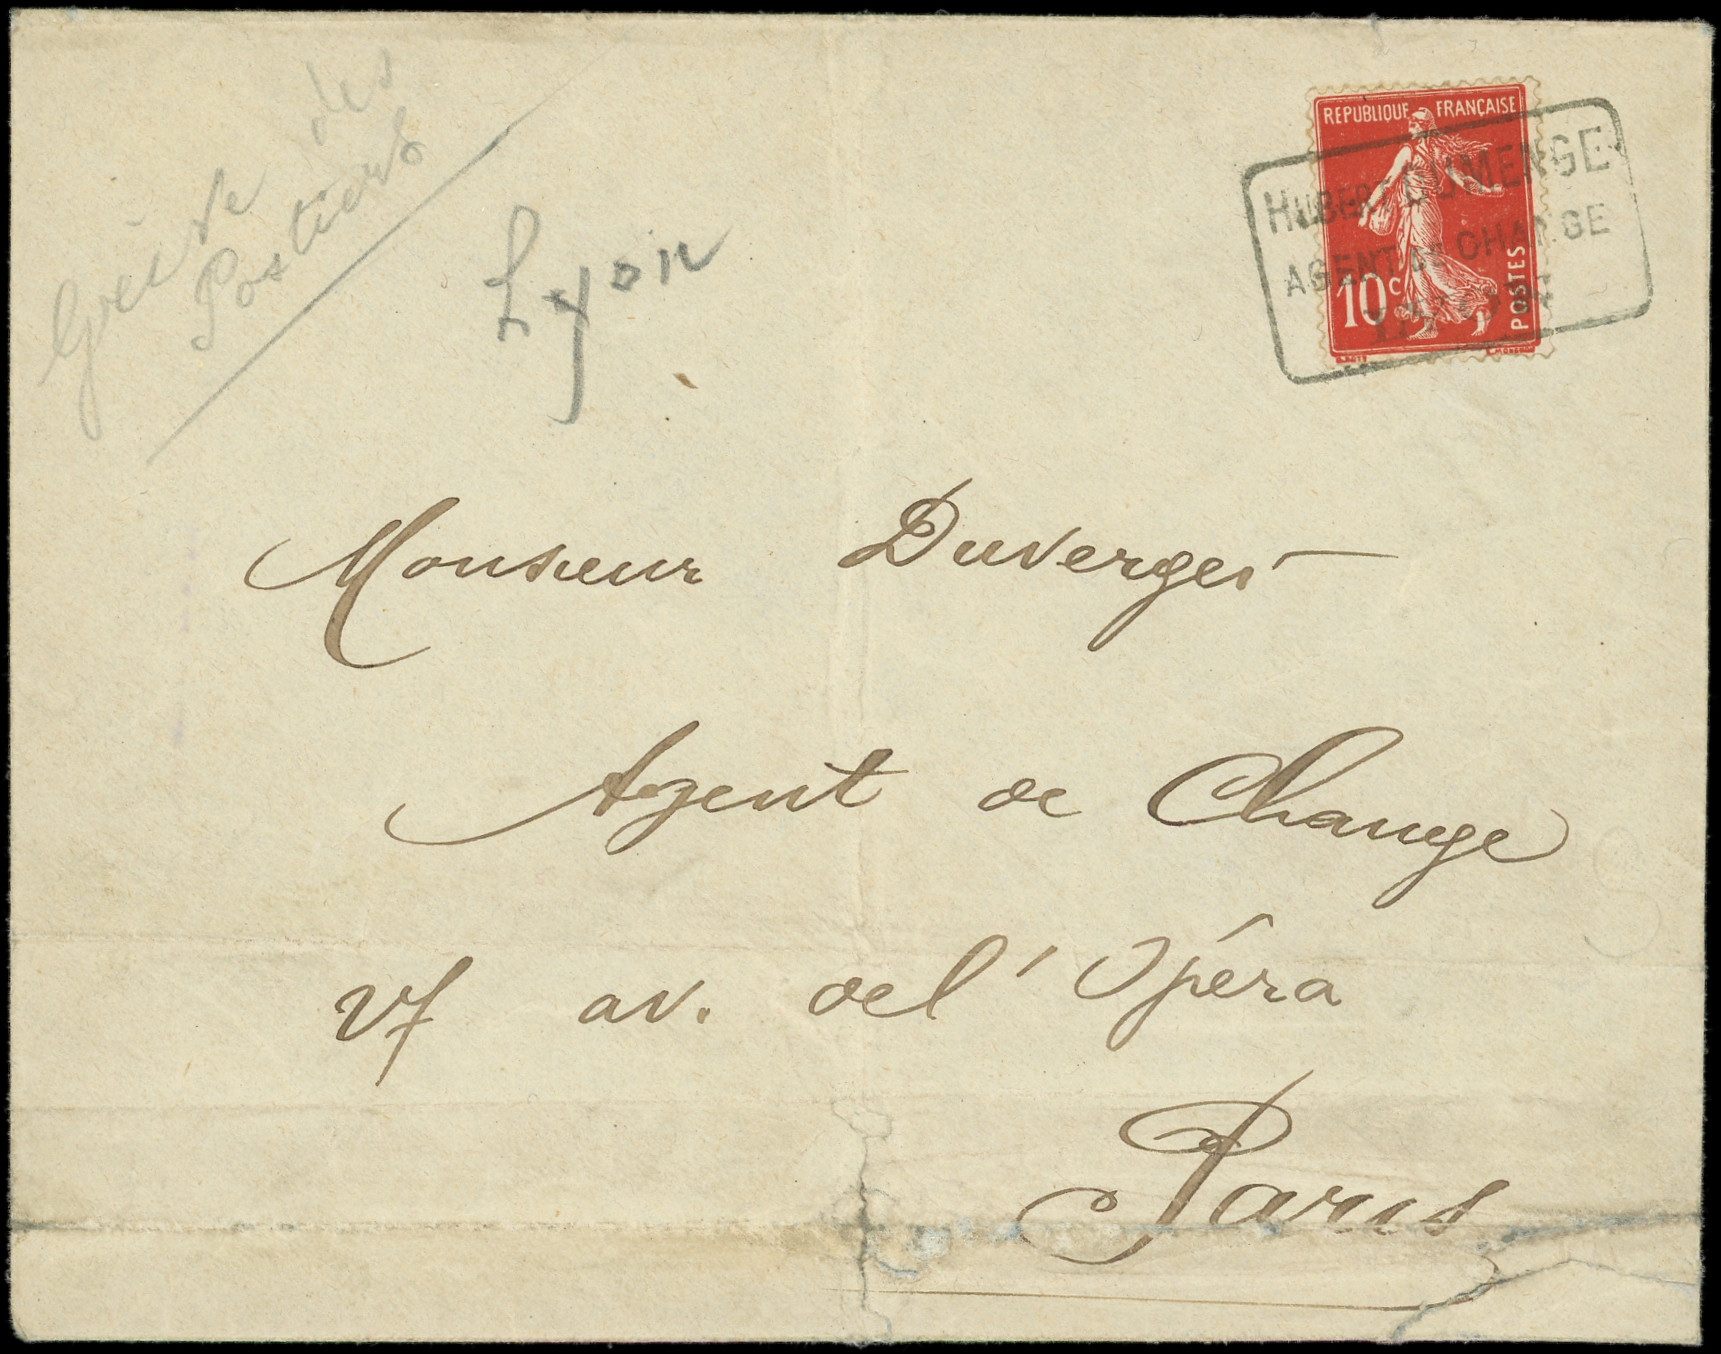 Grève des
Postiers
Lyon
REPUBLIQUE FRANÇAISE
10c
POSTES
HUBERT DUMENGE
AGENT DE CHANGE
Monsieur Duverger
Agent de Change
27 av. de l'Opéra
Paris